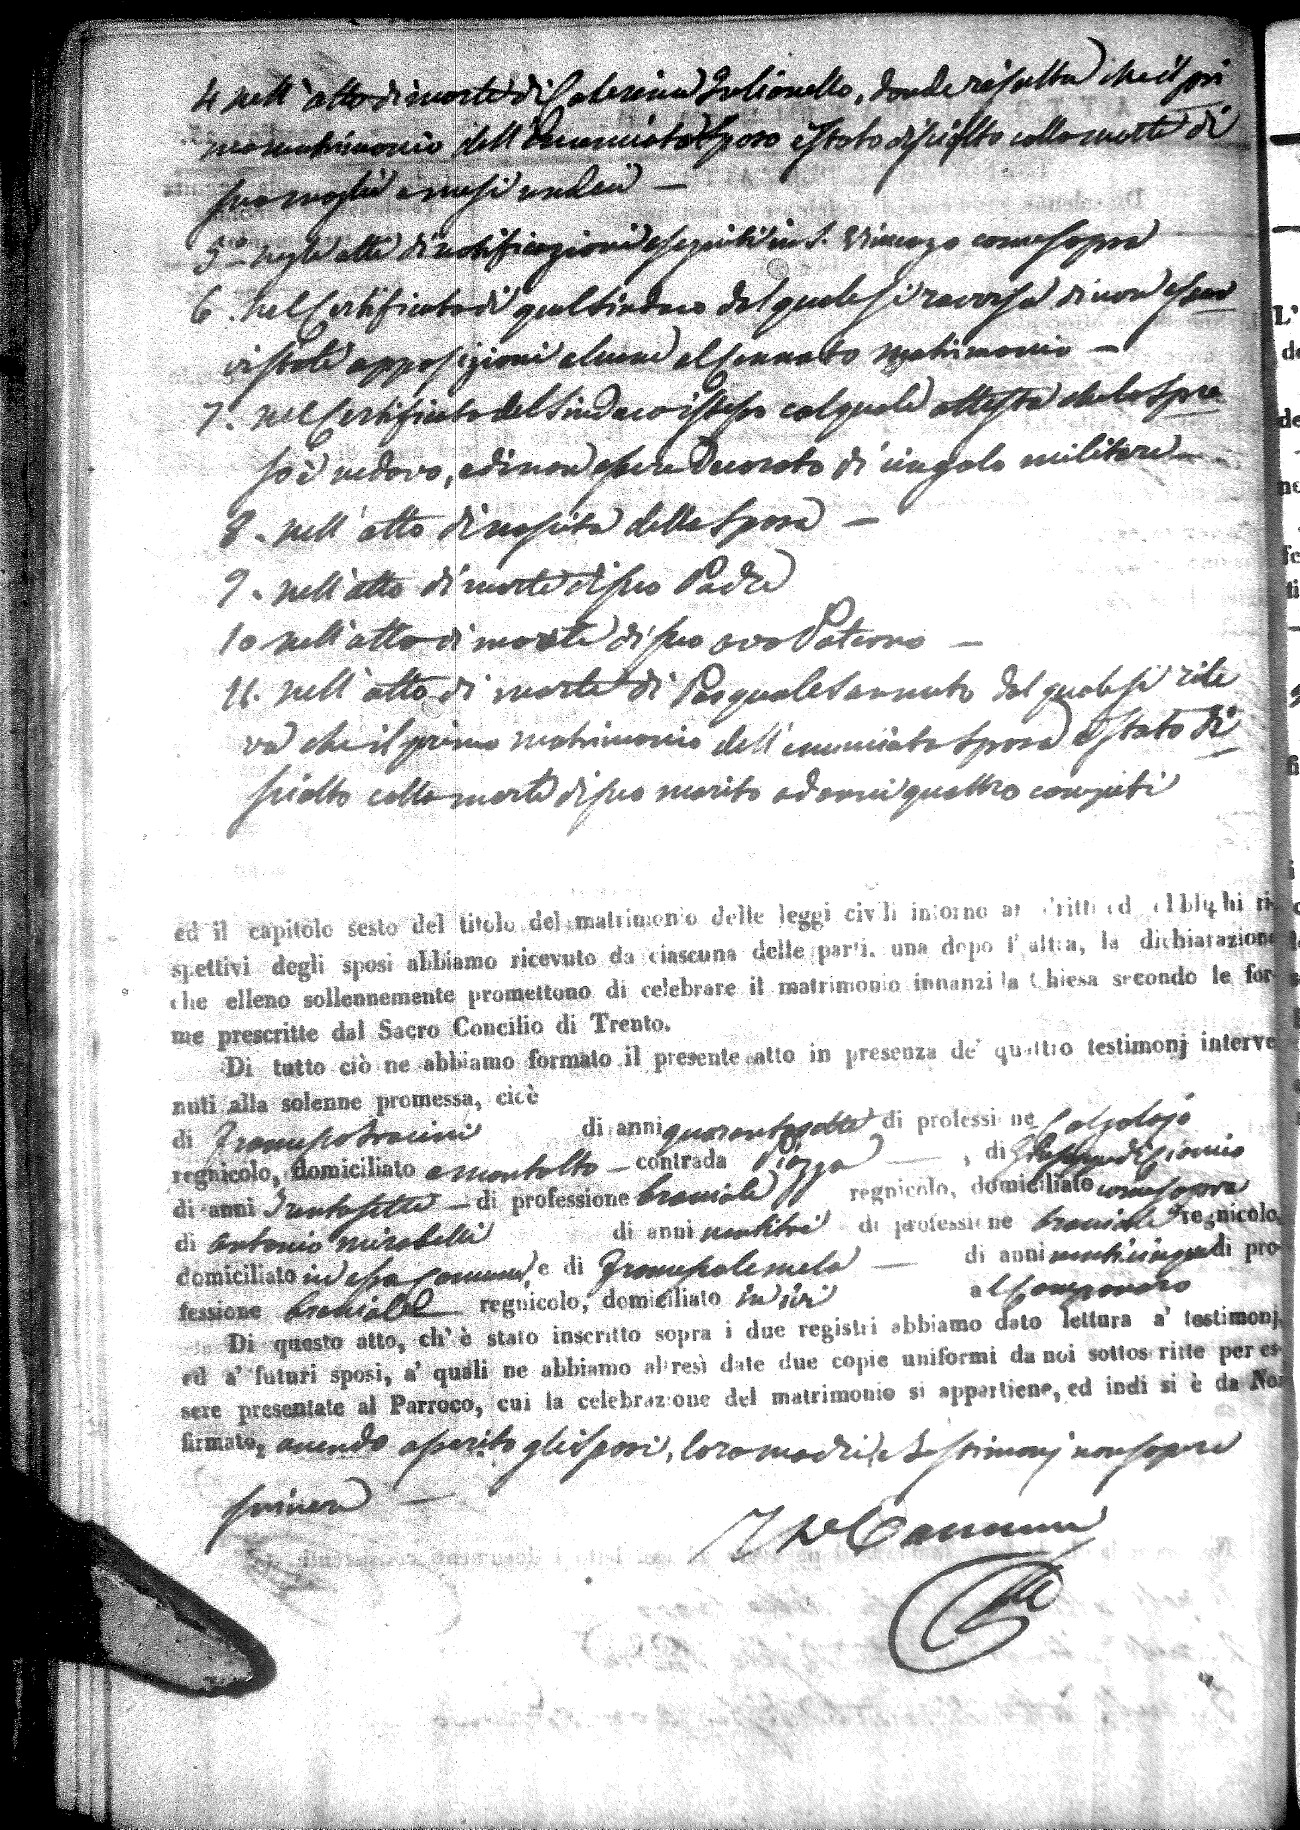 4 nell'atto di morte di Caterina Iulianello, donde risulta che il pri
mo matrimonio dell'enunciato Sposo è stato disciolto colla morte di
sua moglie a mesi undeci —
5° negli atti di notificazioni eseguiti in S. Vincenzo come sopra
6. nel Certificato di quel Sindaco dal quale si ravvisa di non esser
vi state opposizioni alcune al cennato matrimonio —
7. nel Certificato del Sindaco istesso col quale attesta che lo Spo
so è vedovo, e di non essere Decorato di cingolo militare
8. nell'atto di nascita della Sposa —
9. nell'atto di morte di suo Padre
10 nell'atto di morte di suo avo Paterno —
11. nell'atto di morte di Pasquale Sannuto dal quale si rile
va che il primo matrimonio dell'enunciata Sposa è stato di
sciolto colla morte di suo marito ad anni quattro compiti
ed il capitolo sesto del titolo del matrimonio delle leggi civili intorno ai dritti ed obblighi ri-
spettivi degli sposi abbiamo ricevuto da ciascuna delle parti, una dopo l'altra, la dichiarazione
che elleno sollennemente promettono di celebrare il matrimonio innanzi la Chiesa secondo le for-
me prescritte dal Sacro Concilio di Trento.
Di tutto ciò ne abbiamo formato il presente atto in presenza de' quattro testimonj interve
nuti alla solenne promessa, cioè
di Francesco di anni quarantasette di professione Calzolajo
regnicolo, domiciliato a Montalto — contrada Piazza — , di Giuseppe
di anni Trentasette — di professione bracciale regnicolo, domiciliato come sopra
di Antonio Mirabelli di anni ventitre di professione bracciale regnicolo,
domiciliato in essa Comune, e di Francesco Lamela — di anni venticinque di pro-
fessione bracciale regnicolo, domiciliato in ivi al
Di questo atto, ch' è stato inscritto sopra i due registri abbiamo dato lettura a' testimonj,
ed a' futuri sposi, a' quali ne abbiamo altresì date due copie uniformi da noi sottoscritte per es-
sere presentate al Parroco, cui la celebrazione del matrimonio si appartiene, ed indi si è da Noi
firmato, avendo asserito gli sposi, loro madri, e Testimonj non sapere
scrivere —